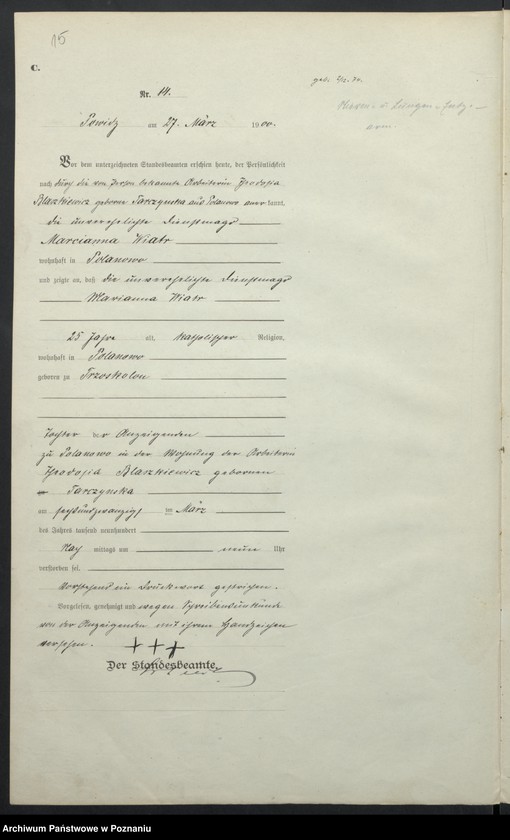 15
C.
Nr. 14.
Powidz am 27. März 1900.
Vor dem unterzeichneten Standesbeamten erschien heute, der Persönlichkeit
nach durch die von Person bekannte Arbeiterin Theodosia
Blaszkiewicz geborene Tarczynska aus Polanowo anerkannt,
die unverehelichte Dienstmagd
Marcianna Wiatr
wohnhaft in Polanowo
und zeigte an, daß die unverehelichte Dienstmagd
Marianna Wiatr
25 Jahre alt, katholischer Religion,
wohnhaft in Polanowo
geboren zu
Tochter der Anzeigenden
zu Polanowo in der Wohnung der Arbeiterin
Theodosia Blaszkiewicz geborenen
Tarczynska
am sechsundzwanzigsten März
des Jahres tausend neunhundert
Nach mittags um neun Uhr
verstorben sei.
Vorstehend ein Druckwort gestrichen.
Vorgelesen, genehmigt und wegen Schreibensunkunde
von der Anzeigenden mit ihrem Handzeichen
versehen. +++
Der Standesbeamte.
Archiwum Państwowe w Poznaniu